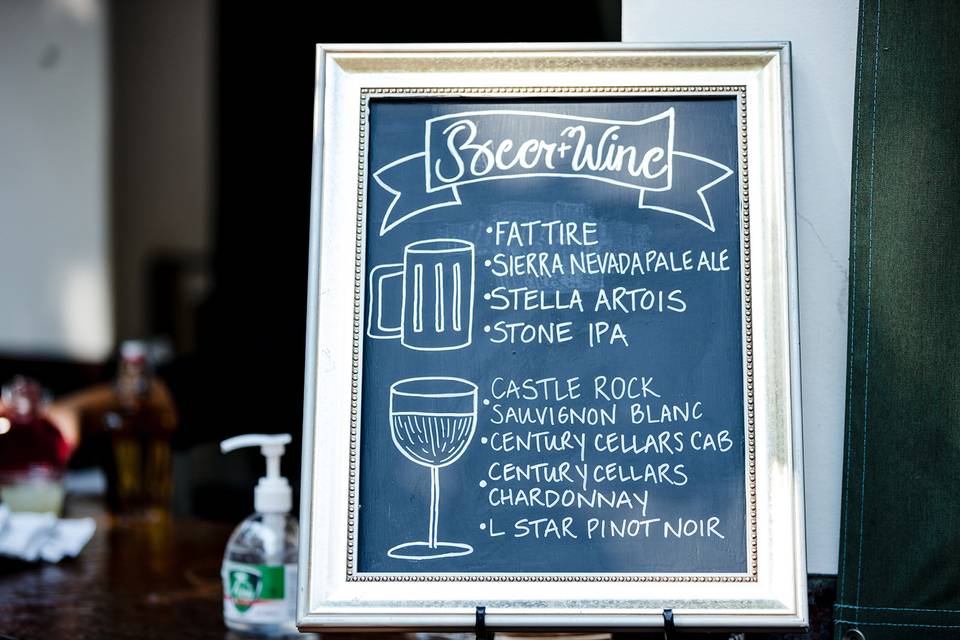 Beer + Wine
•FAT TIRE
•SIERRA NEVADA PALE ALE
•STELLA ARTOIS
•STONE IPA
•CASTLE ROCK
SAUVIGNON BLANC
•CENTURY CELLARS CAB
•CENTURY CELLARS
CHARDONNAY
•L STAR PINOT NOIR